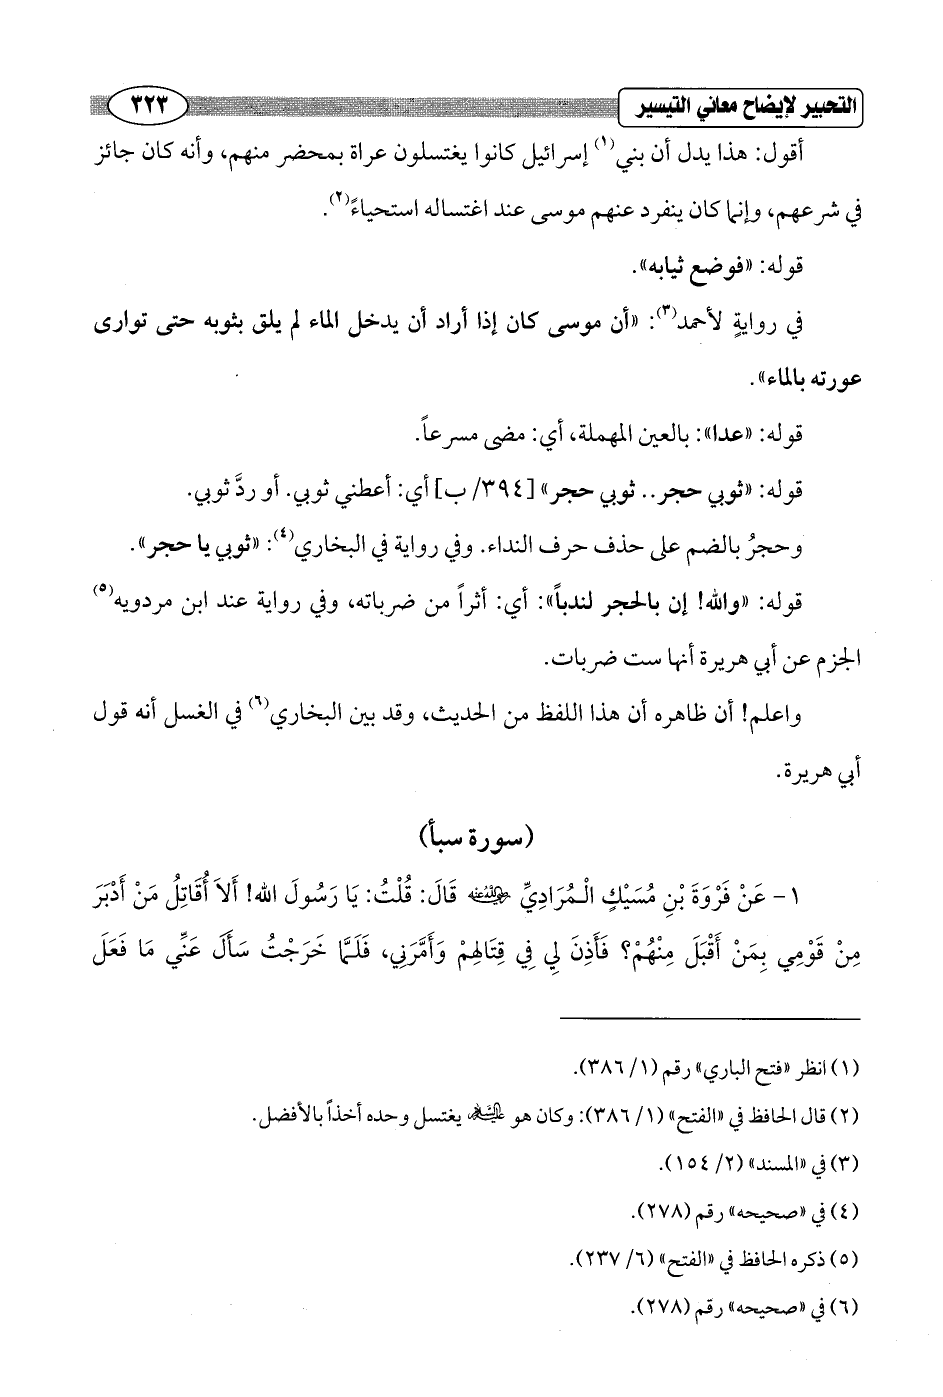 التحبير لإيضاح معاني التيسير ٣٢٣
أقول: هذا يدل أن بني(١) إسرائيل كانوا يغتسلون عراة بمحضر منهم، وأنه كان جائز
في شرعهم، وإنما كان ينفرد عنهم موسى عند اغتساله استحياءً(٢).
قوله: «فوضع ثيابه».
في روايةٍ لأحمد(٣): «أن موسى كان إذا أراد أن يدخل الماء لم يلق بثوبه حتى توارى
عورته بالماء».
قوله: «عدا»: بالعين المهملة، أي: مضى مسرعاً.
قوله: «ثوبي حجر.. ثوبي حجر» [٣٩٤/ ب] أي: أعطني ثوبي. أو ردَّ ثوبي.
وحجرُ بالضم على حذف حرف النداء. وفي رواية في البخاري(٤): «ثوبي يا حجر».
قوله: «والله! إن بالحجر لندباً»: أي: أثراً من ضرباته، وفي رواية عند ابن مردويه(٥)
الجزم عن أبي هريرة أنها ست ضربات.
واعلم! أن ظاهره أن هذا اللفظ من الحديث، وقد بين البخاري(٦) في الغسل أنه قول
أبي هريرة.
(سورة سبأ)
١- عَنْ فَرْوَةَ بْنِ مُسَيْكٍ الْمُرَادِيِّ رضي الله عنه قَالَ: قُلْتُ: يَا رَسُولَ الله! أَلاَ أُقَاتِلُ مَنْ أَدْبَرَ
مِنْ قَوْمِي بِمَنْ أَقْبَلَ مِنْهُمْ؟ فَأَذِنَ لِي فِي قِتَالِهِمْ وَأَمَّرَنِي، فَلَمَّا خَرَجْتُ سَأَلَ عَنِّي مَا فَعَلَ
(١) انظر «فتح الباري» رقم (١/ ٣٨٦).
(٢) قال الحافظ في «الفتح» (١/ ٣٨٦): وكان هو عليه السلام يغتسل وحده أخذاً بالأفضل.
(٣) في «المسند» (٢/ ١٥٤).
(٤) في «صحيحه» رقم (٢٧٨).
(٥) ذكره الحافظ في «الفتح» (٦/ ٢٣٧).
(٦) في «صحيحه» رقم (٢٧٨).